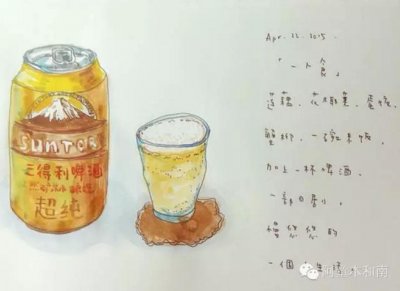 SUNTOR
三得利啤酒
超纯
Apr. 22. 2015.
「一人食」
莲藕、花椰菜、蛋
蟹柳、一碗米饭，
加上一杯啤酒，
一部日剧，
悠悠的
一個